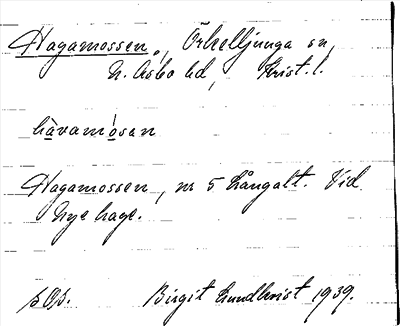 Hagamossen, Örkelljunga sn,
N. Åsbo hd, Krist. l.
hàvamósen
Hagamossen, nr 5 Långalt. Vid
Nye hage.
Birgit Lundkvist 1939.